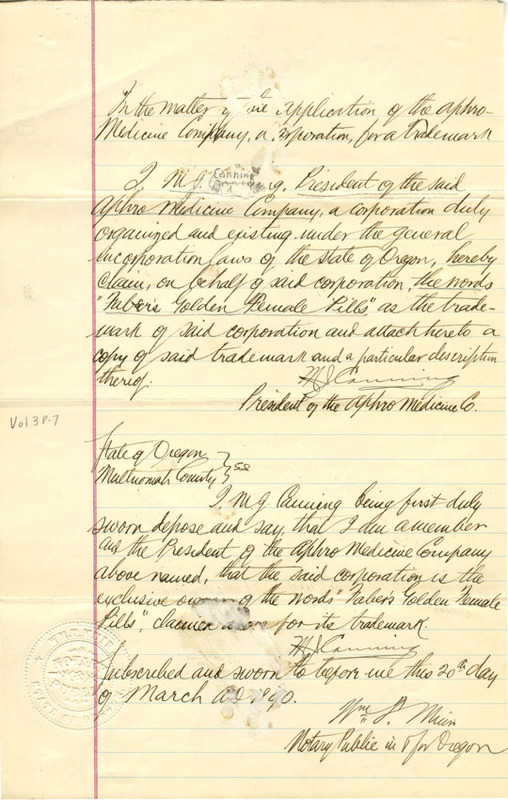 In the matter of the Application of the Aphro-
Medicine Company, a corporation, for a trademark
I, M.J. Canning, President of the said
Aphro Medicine Company, a corporation duly
organized and existing under the general
incorporation laws of the State of Oregon, hereby
claim, on behalf of said corporation, the words
"Faber's Golden Female Pills" as the trade-
mark of said corporation and attach hereto a
copy of said trademark and a particular description
thereof.
M J Canning
President of the Aphro Medicine Co.
Vol 3 P-7
State of Oregon
Multnomah County } ss
I, M J Canning being first duly
sworn depose and say, that I am a member
and the President of the Aphro Medicine Company
above named, that the said corporation is the
exclusive owner of the words "Faber's Golden Female
Pills", claimed for its trademark.
M J Canning
Subscribed and sworn to before me this 20th day
of March AD 1890.
Wm
Notary Public in & for Oregon